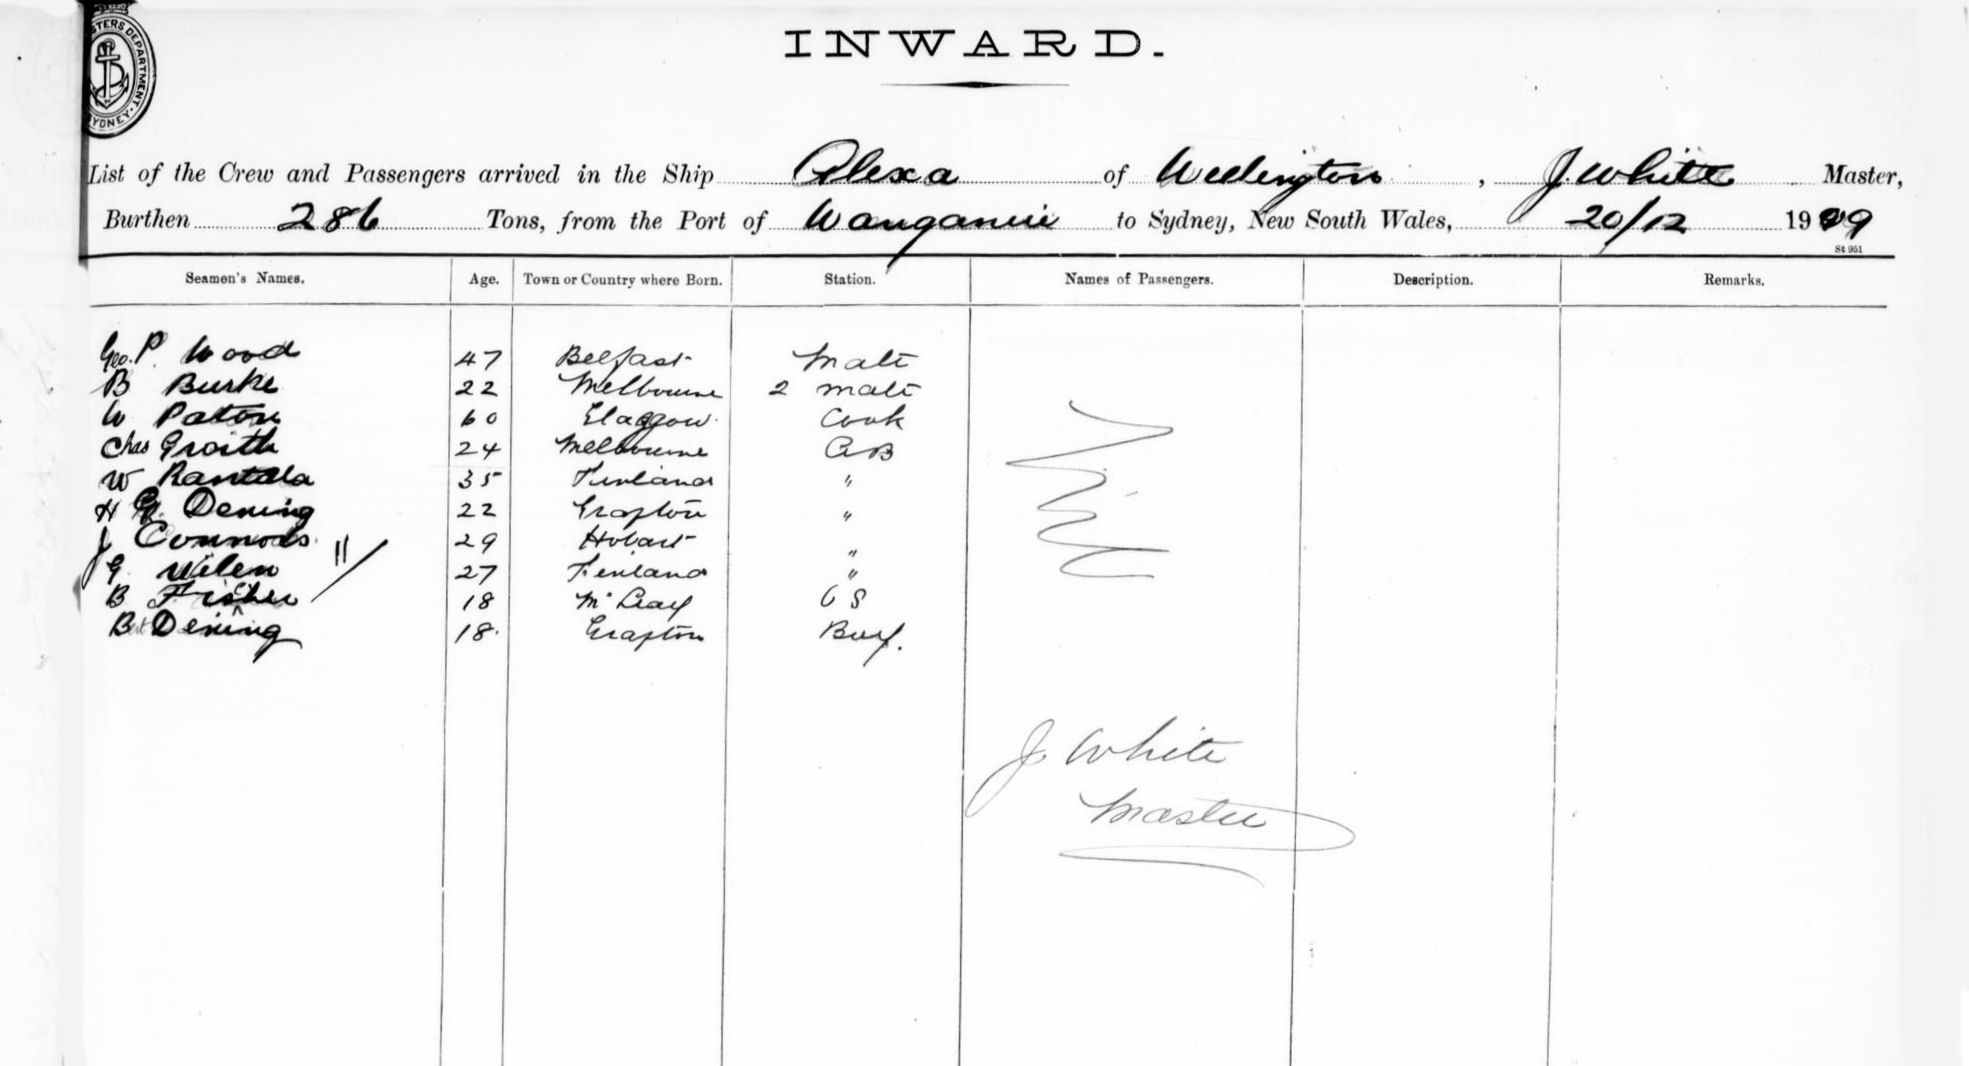 INWARD.
List of the Crew and Passengers arrived in the Ship Alexa of Wellington, J. White Master,
Burthen 286 Tons, from the Port of Wanganui to Sydney, New South Wales, 20/12 1909
St 951
Seamen's Names. Age. Town or Country where Born. Station. Names of Passengers. Description. Remarks.
Geo. P Wood 47 Belfast Mate
B Burke 22 Melbourne 2 mate
W Paton 60 Glasgow Cook
Chas 24 Melbourne AB
W Rantala 35 Finland "
H G. Dening 22 Grafton "
J Connors 29 Hobart "
G Wilen 27 Finland "
B Fisher 18 McLeay OS
Bert Dening 18. Grafton Boy.
Nil
J White
Master